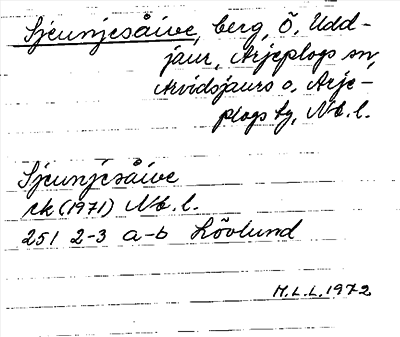 Sjeunjesåive, berg, Ö. Udd-
jaur, Arjeplogs sn,
Arvidsjaurs o. Arje-
plogs tg, Nb. l.
Sjeunjesåive
ek (1971) Nb. l.
251 2-3 a-b Lövlund
M.L.L. 1972